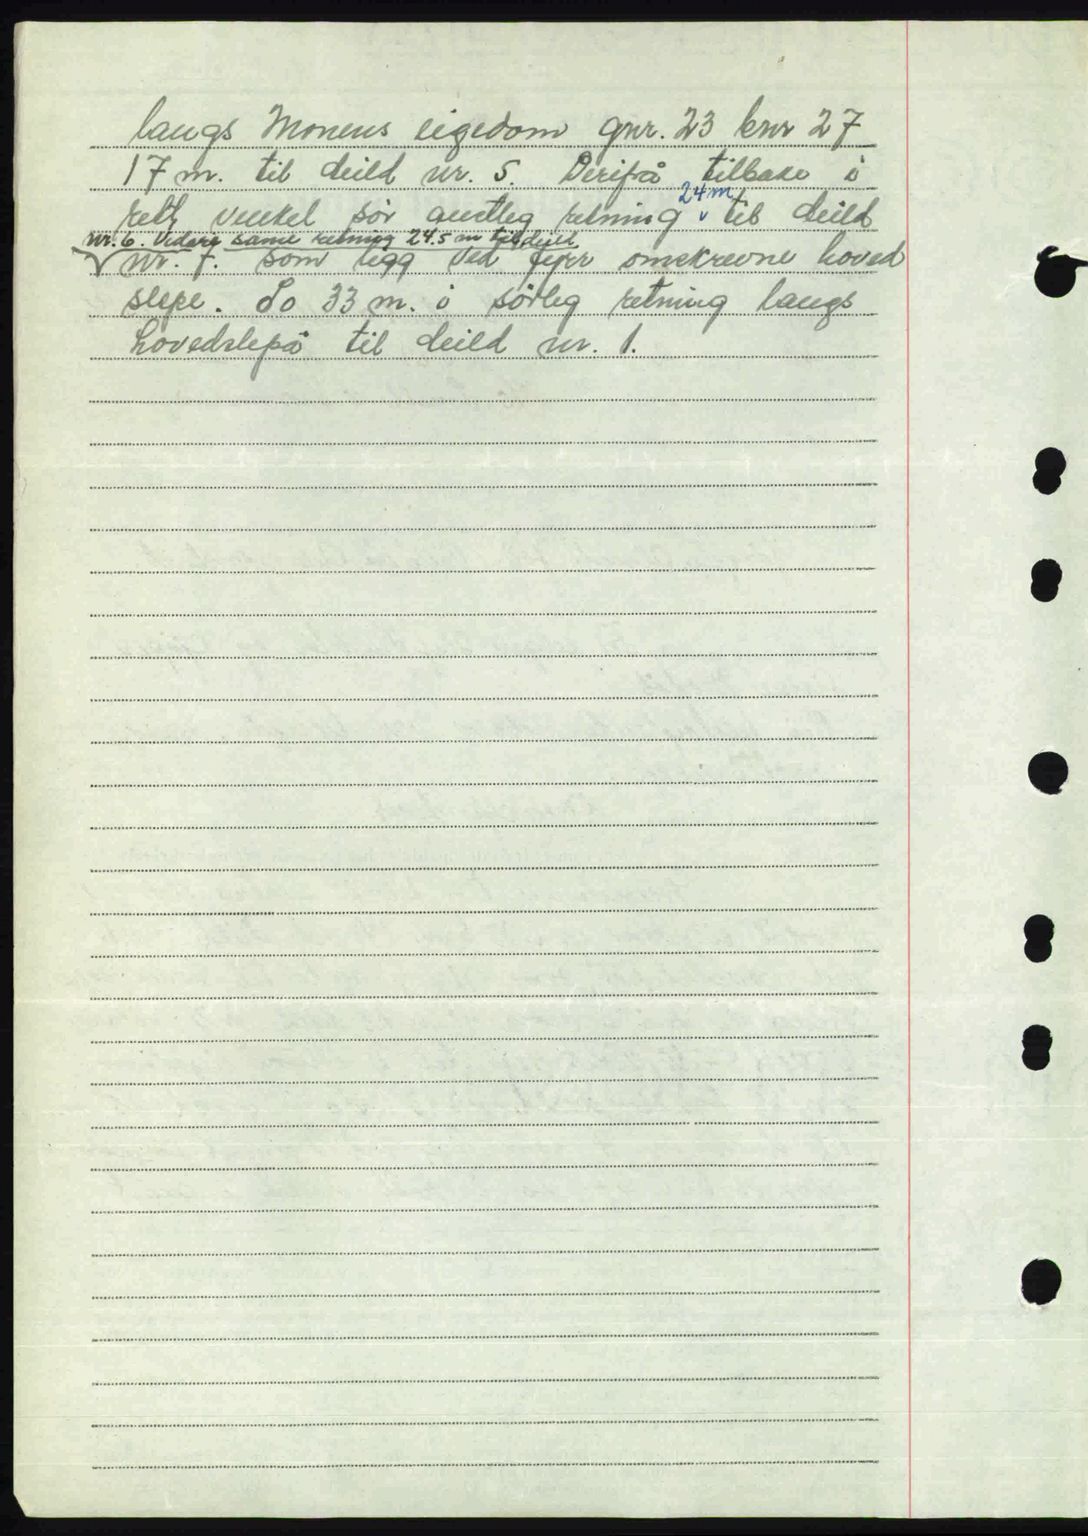 langs Monens eigedom gnr. 23 bnr 27
17 m. til deild nr. 5. Derifrå tilbake i
rett vinkel sör austleg retning 24 m til deild
nr. 6. Vidare same retning 24.5 m til deild
nr. 7. som ligg ved fyrr omskrevne hoved
slepe. So 33 m. i sörleg retning langs
hovedslepå til deild nr. 1.